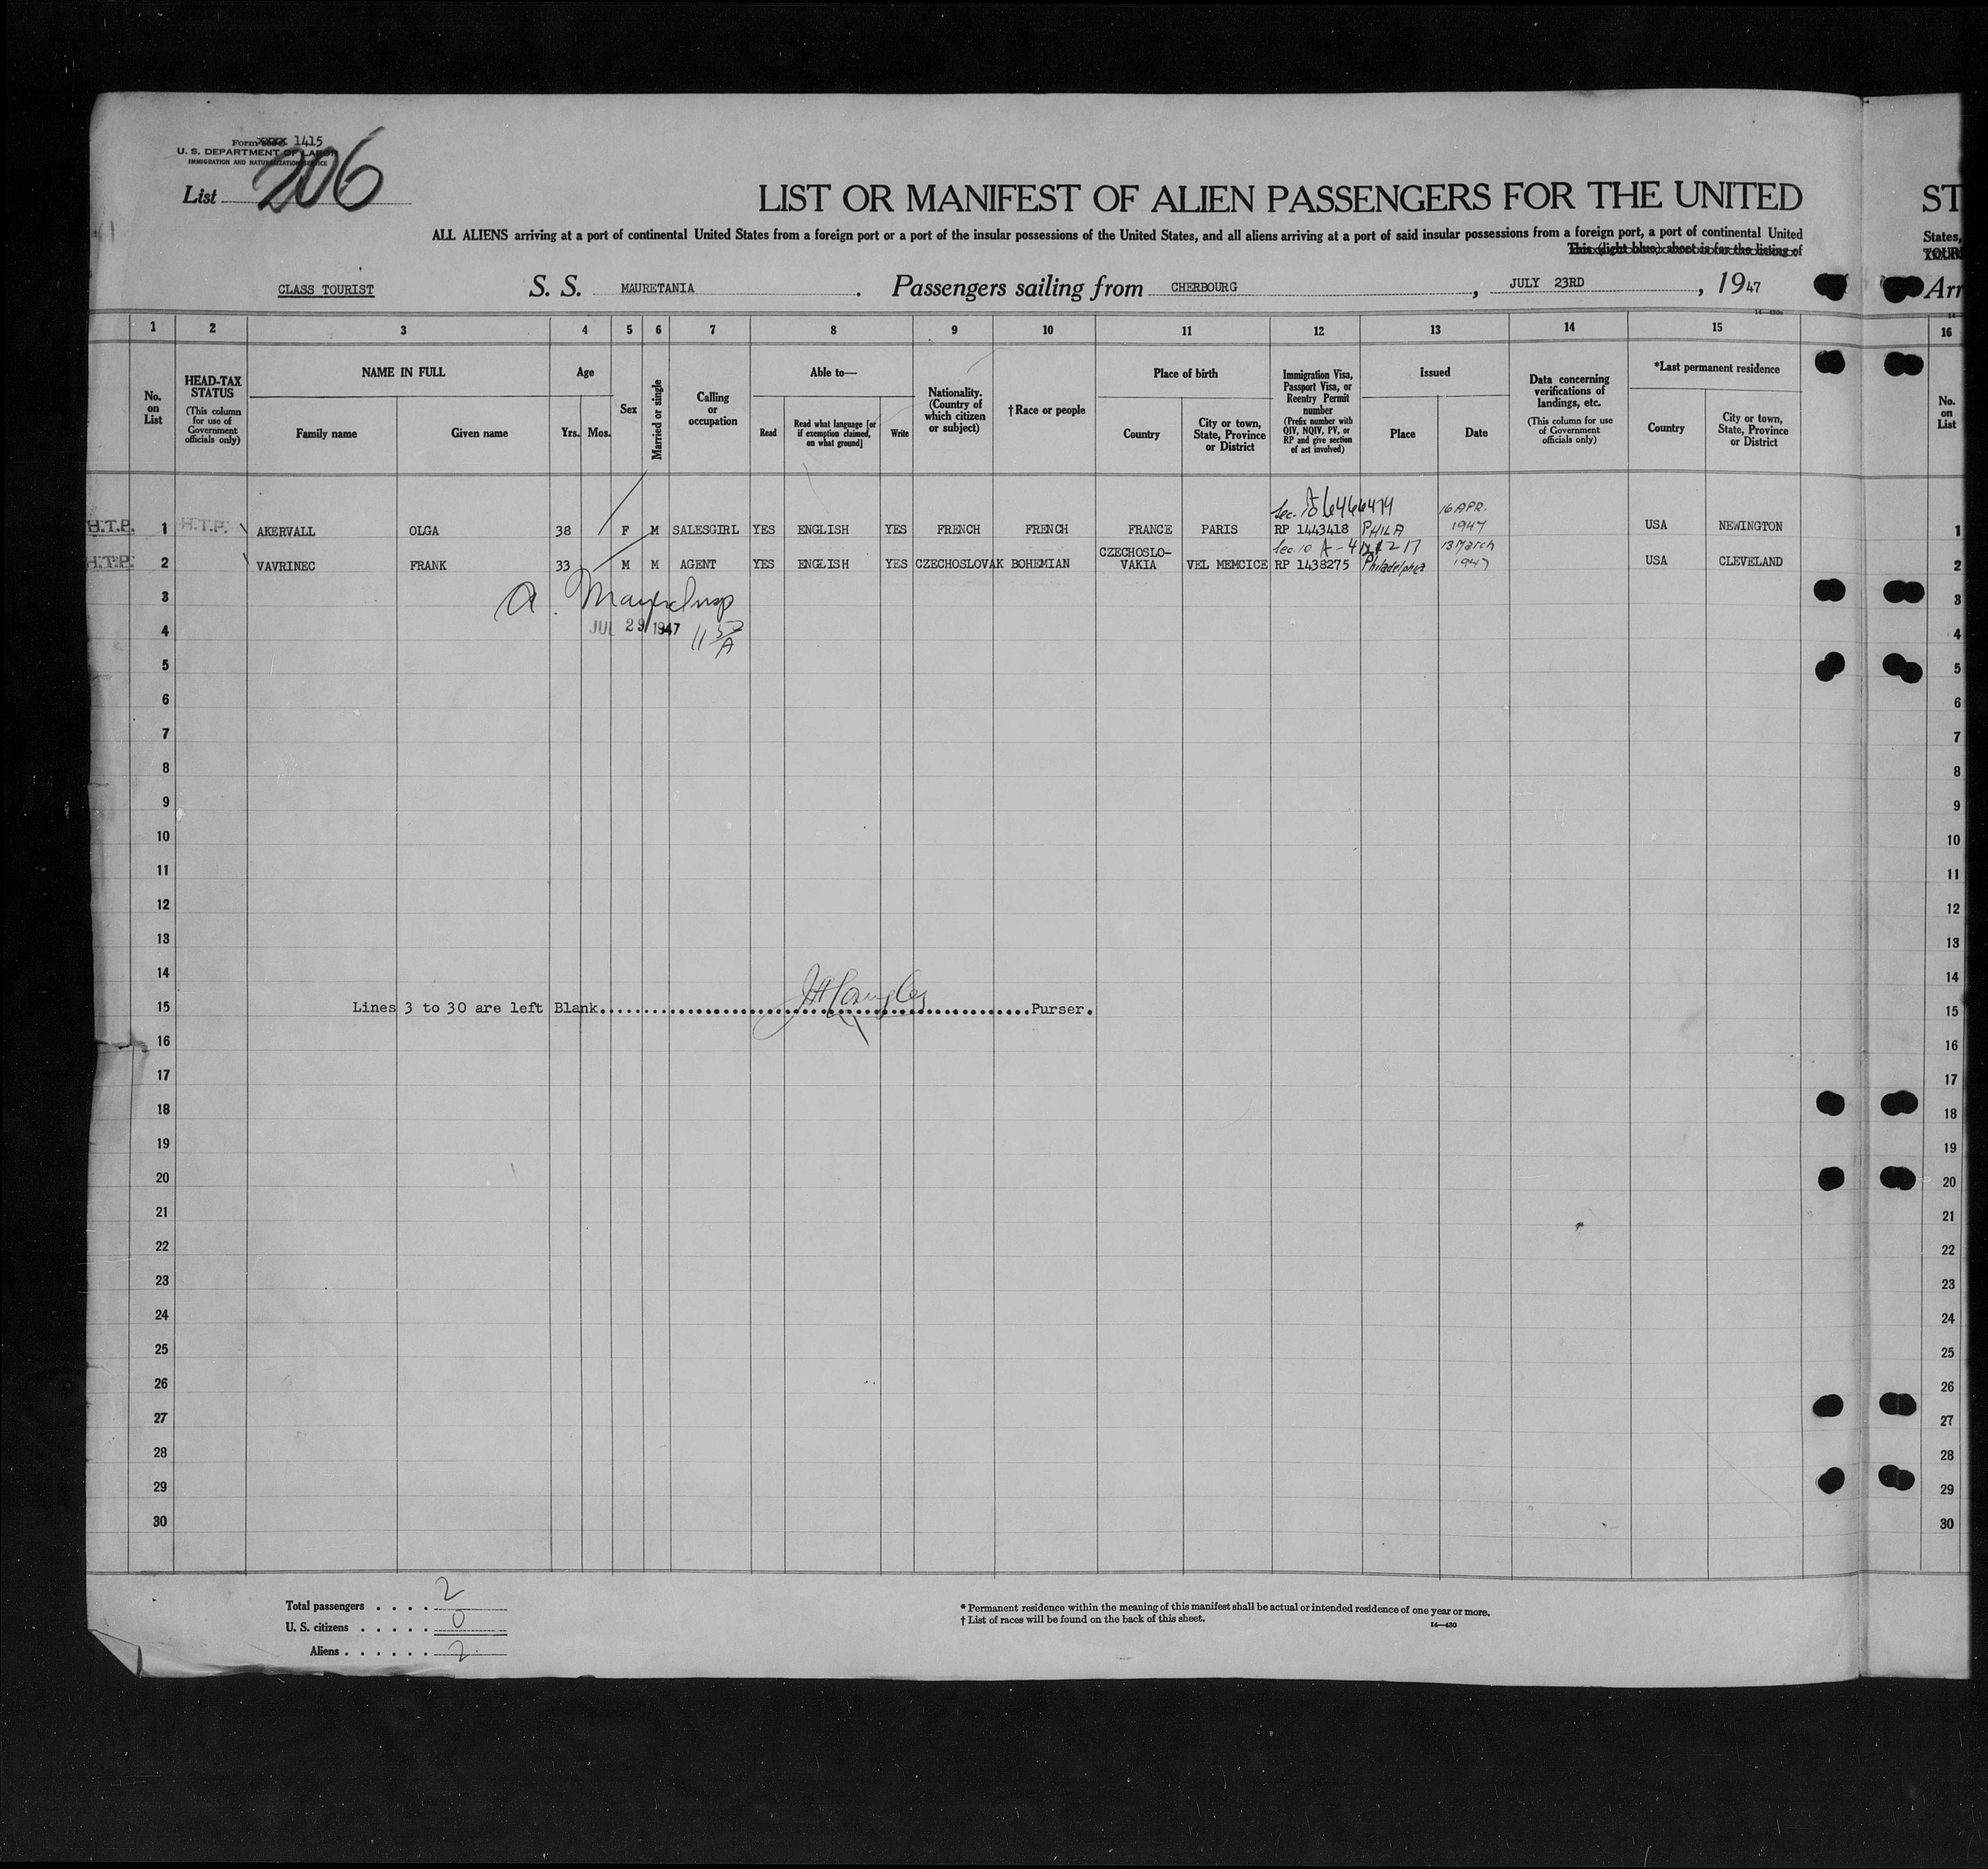 Form 1415
U. S. DEPARTMENT OF LABOR
IMMIGRATION AND NATURALIZATION SERVICE
List 206
LIST OR MANIFEST OF ALIEN PASSENGERS FOR THE UNITED
ST
ALL ALIENS arriving at a port of continental United States from a foreign port or a port of the insular possessions of the United States, and all aliens arriving at a port of said insular possessions from a foreign port, a port of continental United
States,
This (light blue) sheet is for the listing of
CLASS TOURIST S. S. MAURETANIA . Passengers sailing from CHERBOURG , JULY 23RD , 1947
Arr
1 2 3 4 5 6 7 8 9 10 11 12 13 14 15 16
No. on List
HEAD-TAX STATUS (This column for use of Government officials only)
NAME IN FULL Family name Given name
Age Yrs. Mos.
Sex
Married or single
Calling or occupation
Able to— Read Read what language [or if exemption claimed, on what ground] Write
Nationality. (Country of which citizen or subject)
†Race or people
Place of birth Country City or town, State, Province or District
Immigration Visa, Passport Visa, or Reentry Permit number (Prefix number with QIV, NQIV, PV, or RP and give section of act involved)
Issued Place Date
Data concerning verifications of landings, etc. (This column for use of Government officials only)
*Last permanent residence Country City or town, State, Province or District
No. on List
Sec. 10 16 APR.
H.T.P. 1 H.T.P. AKERVALL OLGA 38 F M SALESGIRL YES ENGLISH YES FRENCH FRENCH FRANCE PARIS RP 1443418 PHILA 1947 USA NEWINGTON 1
Sec 10 13 March
H.T.P. 2 VAVRINEC FRANK 33 M M AGENT YES ENGLISH YES CZECHOSLOVAK BOHEMIAN CZECHOSLO-VAKIA VEL MEMCICE RP 1438275 Philadelphia 1947 USA CLEVELAND 2
3 3
JUL 29 1947
4 4
5 5
6 6
7 7
8 8
9 9
10 10
11 11
12 12
13 13
14 14
15 Lines 3 to 30 are left Blank. Purser. 15
16 16
17 17
18 18
19 19
20 20
21 21
22 22
23 23
24 24
25 25
26 26
27 27
28 28
29 29
30 30
Total passengers . . . . 2
U. S. citizens . . . . . 0
Aliens . . . . . . 2
* Permanent residence within the meaning of this manifest shall be actual or intended residence of one year or more.
† List of races will be found on the back of this sheet.
14—430